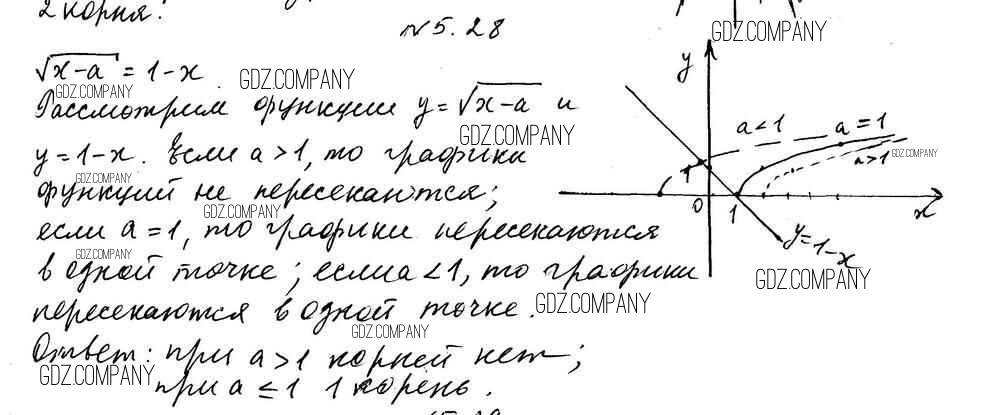 2 корня.
№5.28
√x-a = 1-x.
Рассмотрим функции y=√x-a и
y=1-x. Если a>1, то графики
функций не пересекаются;
если a=1, то графики пересекаются
в одной точке; если a<1, то графики
пересекаются в одной точке.
Ответ: при a>1 корней нет;
при a≤1 1 корень.
y
a<1
a=1
a>1
1
0
1
x
y=1-x
GDZ.COMPANY
GDZ.COMPANY
GDZ.COMPANY
GDZ.COMPANY
GDZ.COMPANY
GDZ.COMPANY
GDZ.COMPANY
GDZ.COMPANY
GDZ.COMPANY
GDZ.COMPANY
GDZ.COMPANY
GDZ.COMPANY